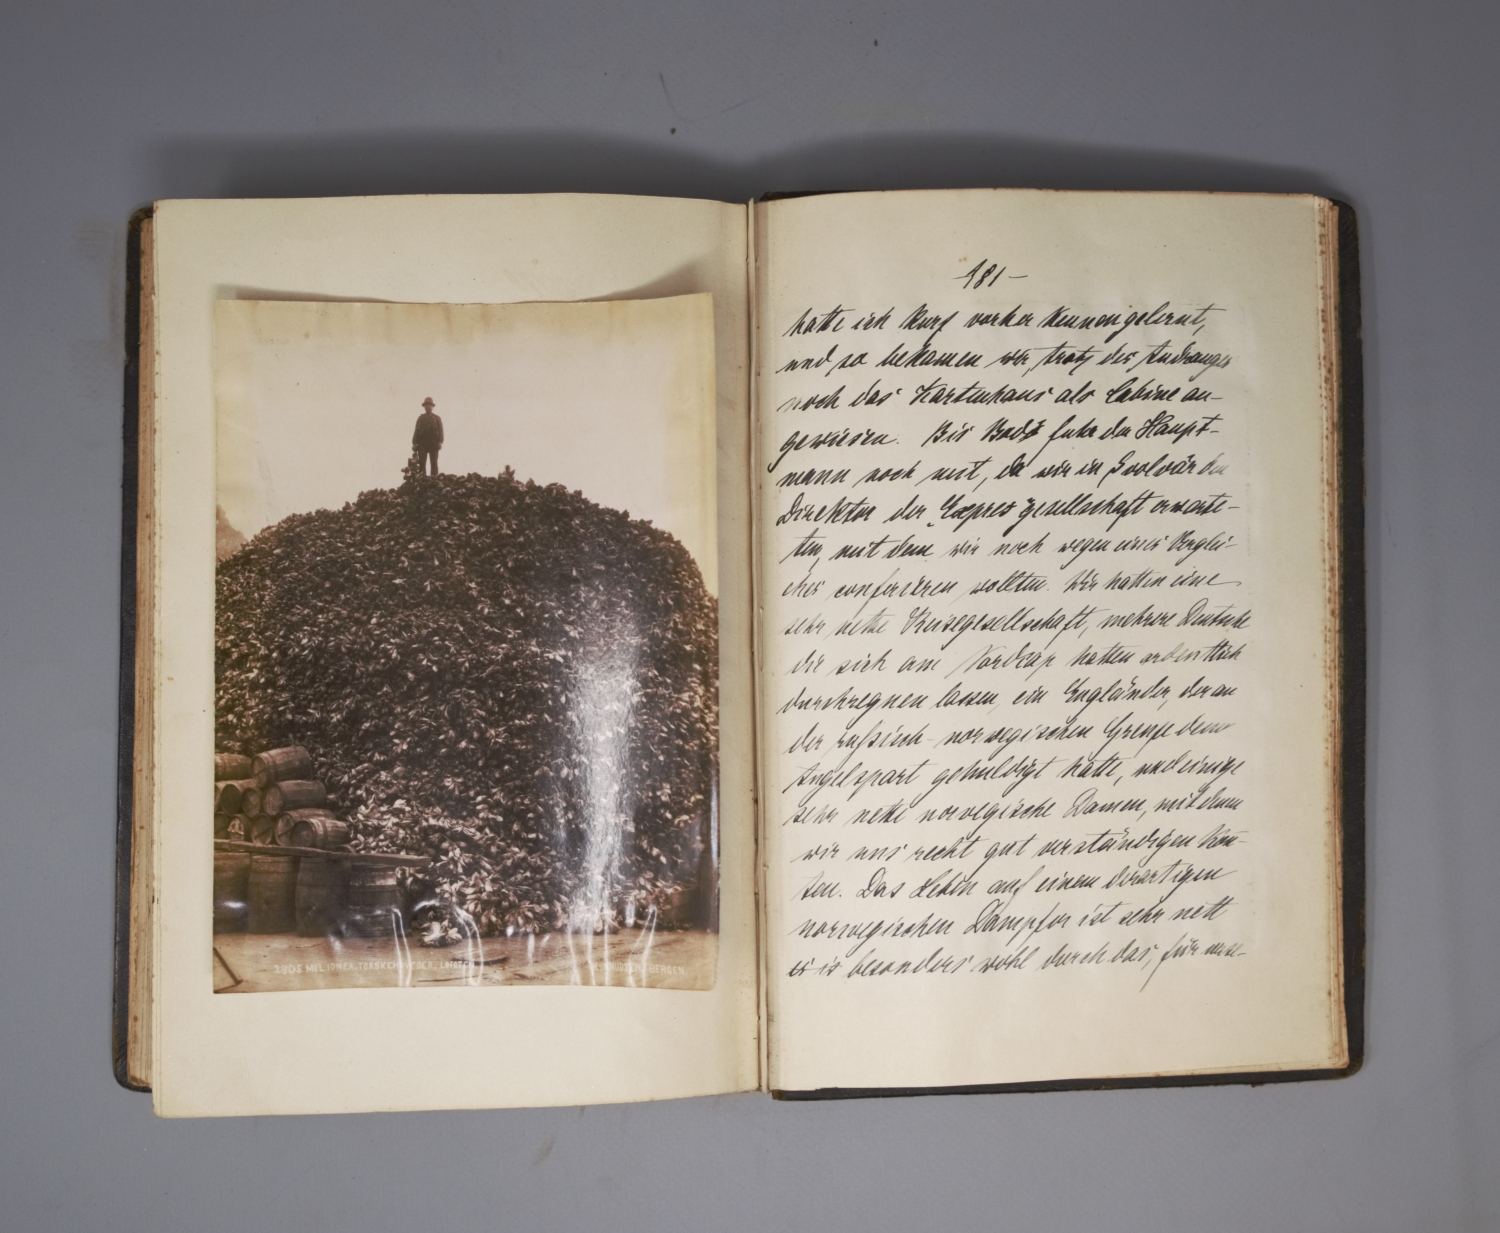 2805 MILIONER TORSKEHOVEDER, LOFOTEN
KNUDSEN, BERGEN.
-181-
hatte ich kurz vorher kennengelernt,
und so bekamen wir, trotz des Andranges
noch das Kartenhaus als Cabine an-
gewiesen. Bis Bodö fuhr der Haupt-
mann noch mit, da wir in Svolvär den
Direktor der "Expres"gesellschaft erwarte-
ten, mit dem wir noch wegen eines Verglei-
ches conferieren wollten. Wir hatten eine
sehr nette Reisegesellschaft, mehrere Deutsche
die sich am Nordcap hatten ordentlich
durchregnen lassen, ein Engländer, der an
der russisch-norwegischen Grenze dem
Angelsport gehuldigt hatte, und einige
sehr nette norwegische Damen, mit denen
wir uns recht gut verständigen konn-
ten. Das Leben auf einem derartigen
norwegischen Dampfer ist sehr nett
es is besonders wohl durch das, für